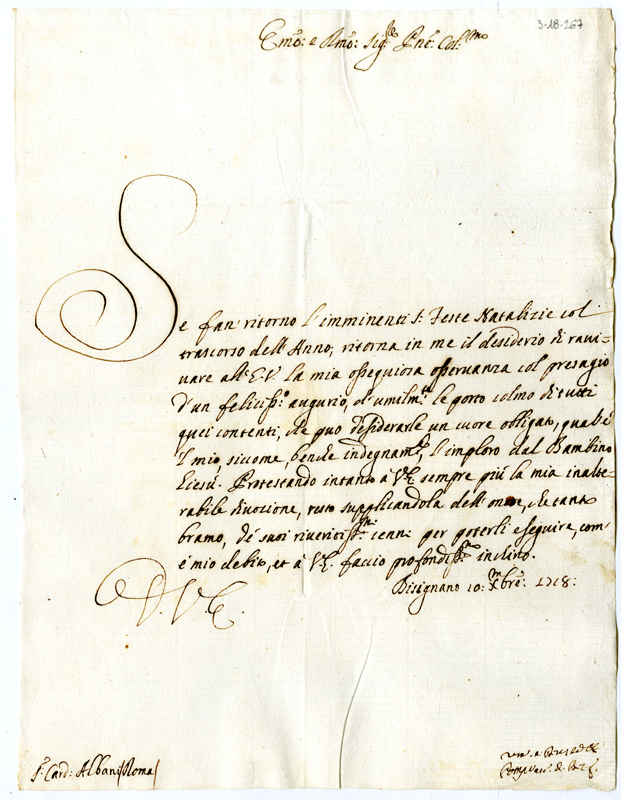 3-18-267
Emo: e Rmo: Sig.re Pne: Col:mo
Se fan ritorno l'imminenti S: Feste Natalizie col
trascorso dell'Anno, ritorna in me il desiderio di ravi-
vare all'E.V. la mia ossequiosa osservanza col presagio
d'un feliciss:o augurio, ch'umilm:te le porto colmo di tutti
quei contenti, che può desiderarle un cuore obligato, qual'è
'l mio, siccome, benche indegnam:te, l'imploro dal Bambino
Giesù. Protestando intanto à V.E. sempre più la mia inalte-
rabile divozione, resto supplicandola dell'onore, che tanto
bramo, de' suoi riveritiss:mi cenni per poterli eseguire, com'
è mio debito, et à V.E. faccio profondiss:mo inchino.
Bisignano 10: Xmbre: 1718:
D. V. E.
S: Card: Albani Roma